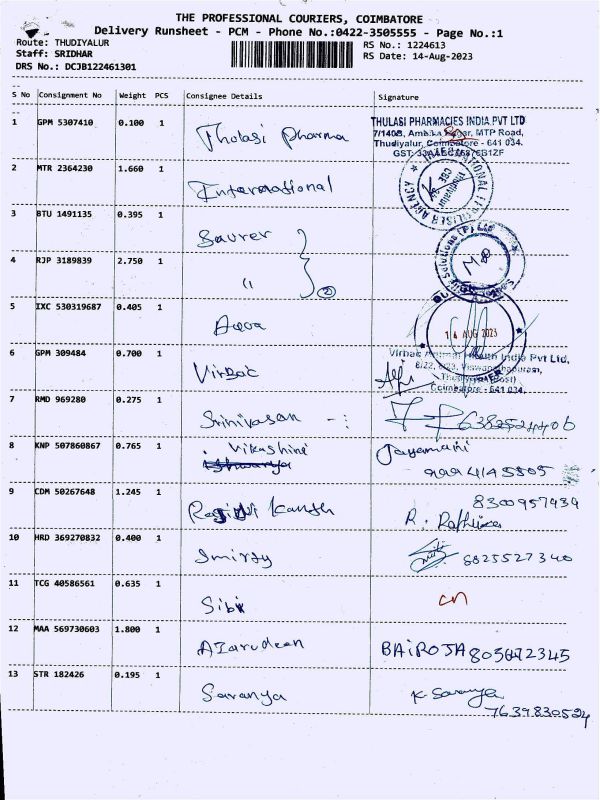 THE PROFESSIONAL COURIERS, COIMBATORE
Delivery Runsheet - PCM - Phone No.:0422-3505555 - Page No.:1
Route: THUDIYALUR
Staff: SRIDHAR
DRS No.: DCJB122461301
RS No.: 1224613
RS Date: 14-Aug-2023
S No Consignment No Weight PCS Consignee Details Signature
1 GPM 5307410 0.100 1 Thulasi Pharma
THULASI PHARMACIES INDIA PVT LTD
7/1408, Ambika Nagar, MTP Road,
Thudiyalur, Coimbatore - 641 034.
2 MTR 2364230 1.660 1 International
3 BTU 1491135 0.395 1 Saurer
4 RJP 3189839 2.750 1 " 2
5 IXC 530319687 0.405 1 Aqua
14 AUG 2023
6 GPM 309484 0.700 1 Virbac
Virbac Animal Health India Pvt Ltd,
Coimbatore - 641 034.
7 RMD 969280 0.275 1 Srinivasan
8 KNP 507860867 0.765 1 Vikashini Jayamani
9994145505
9 CDM 50267648 1.245 1 Kanth 8300957939
10 HRD 369270832 0.400 1
11 TCG 40586561 0.635 1 Sibi cn
12 MAA 569730603 1.800 1 AZarudeen BAIROJA
13 STR 182426 0.195 1 Saranya K Saranya
7639830524